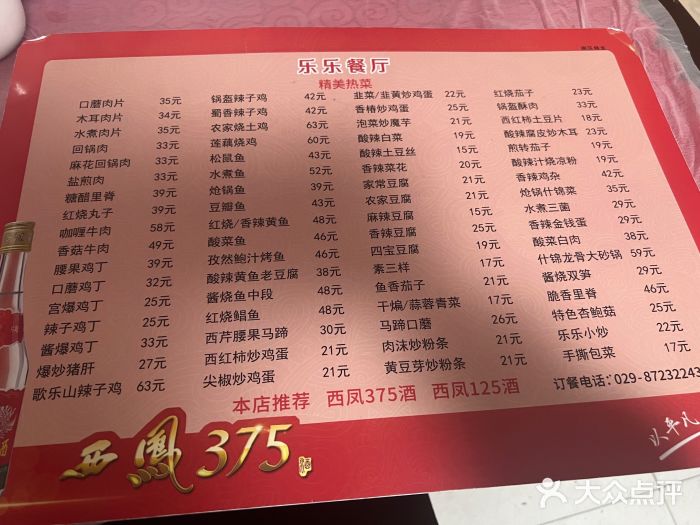 乐乐餐厅
精美热菜
口蘑肉片 35元
木耳肉片 34元
水煮肉片 35元
回锅肉 33元
麻花回锅肉 33元
盐煎肉 33元
糖醋里脊 39元
红烧丸子 39元
咖喱牛肉 58元
香菇牛肉 49元
腰果鸡丁 39元
口蘑鸡丁 32元
宫爆鸡丁 25元
辣子鸡丁 25元
酱爆鸡丁 33元
爆炒猪肝 27元
歌乐山辣子鸡 63元
锅盔辣子鸡 42元
蜀香辣子鸡 42元
农家烧土鸡 63元
莲藕烧鸡 60元
松鼠鱼 43元
水煮鱼 52元
炝锅鱼 43元
豆瓣鱼 43元
红烧/香辣黄鱼 48元
酸菜鱼 46元
孜然鲍汁烤鱼 46元
酸辣黄鱼老豆腐 38元
酱烧鱼中段 48元
红烧鲳鱼 48元
西芹腰果马蹄 30元
西红柿炒鸡蛋 21元
尖椒炒鸡蛋 21元
韭菜/韭黄炒鸡蛋 22元
香椿炒鸡蛋 25元
泡菜炒魔芋 21元
酸辣白菜 19元
酸辣土豆丝 15元
香辣菜花 20元
家常豆腐 21元
农家豆腐 21元
麻辣豆腐 15元
香辣豆腐 25元
四宝豆腐 19元
素三样 17元
鱼香茄子 21元
干煸/蒜蓉青菜 17元
马蹄口蘑 26元
肉沫炒粉条 21元
黄豆芽炒粉条 21元
红烧茄子 23元
锅盔酥肉 33元
西红柿土豆片 18元
酸辣腐皮炒木耳 23元
煎转茄子 19元
酸辣汁烧凉粉 19元
香辣鸡杂 42元
炝锅什锦菜 35元
水煮三菌 29元
香辣金钱蛋 29元
酸菜白肉 38元
什锦龙骨大砂锅 59元
酱烧双笋 29元
脆香里脊 46元
特色杏鲍菇 25元
乐乐小炒 22元
手撕包菜 17元
本店推荐 西凤375酒 西凤125酒
订餐电话：029-87232243
西鳳375酒
以平凡
大众点评